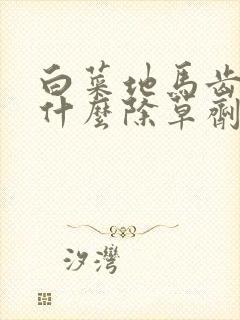 白菜地馬齒
什麼除草劑
汐灣